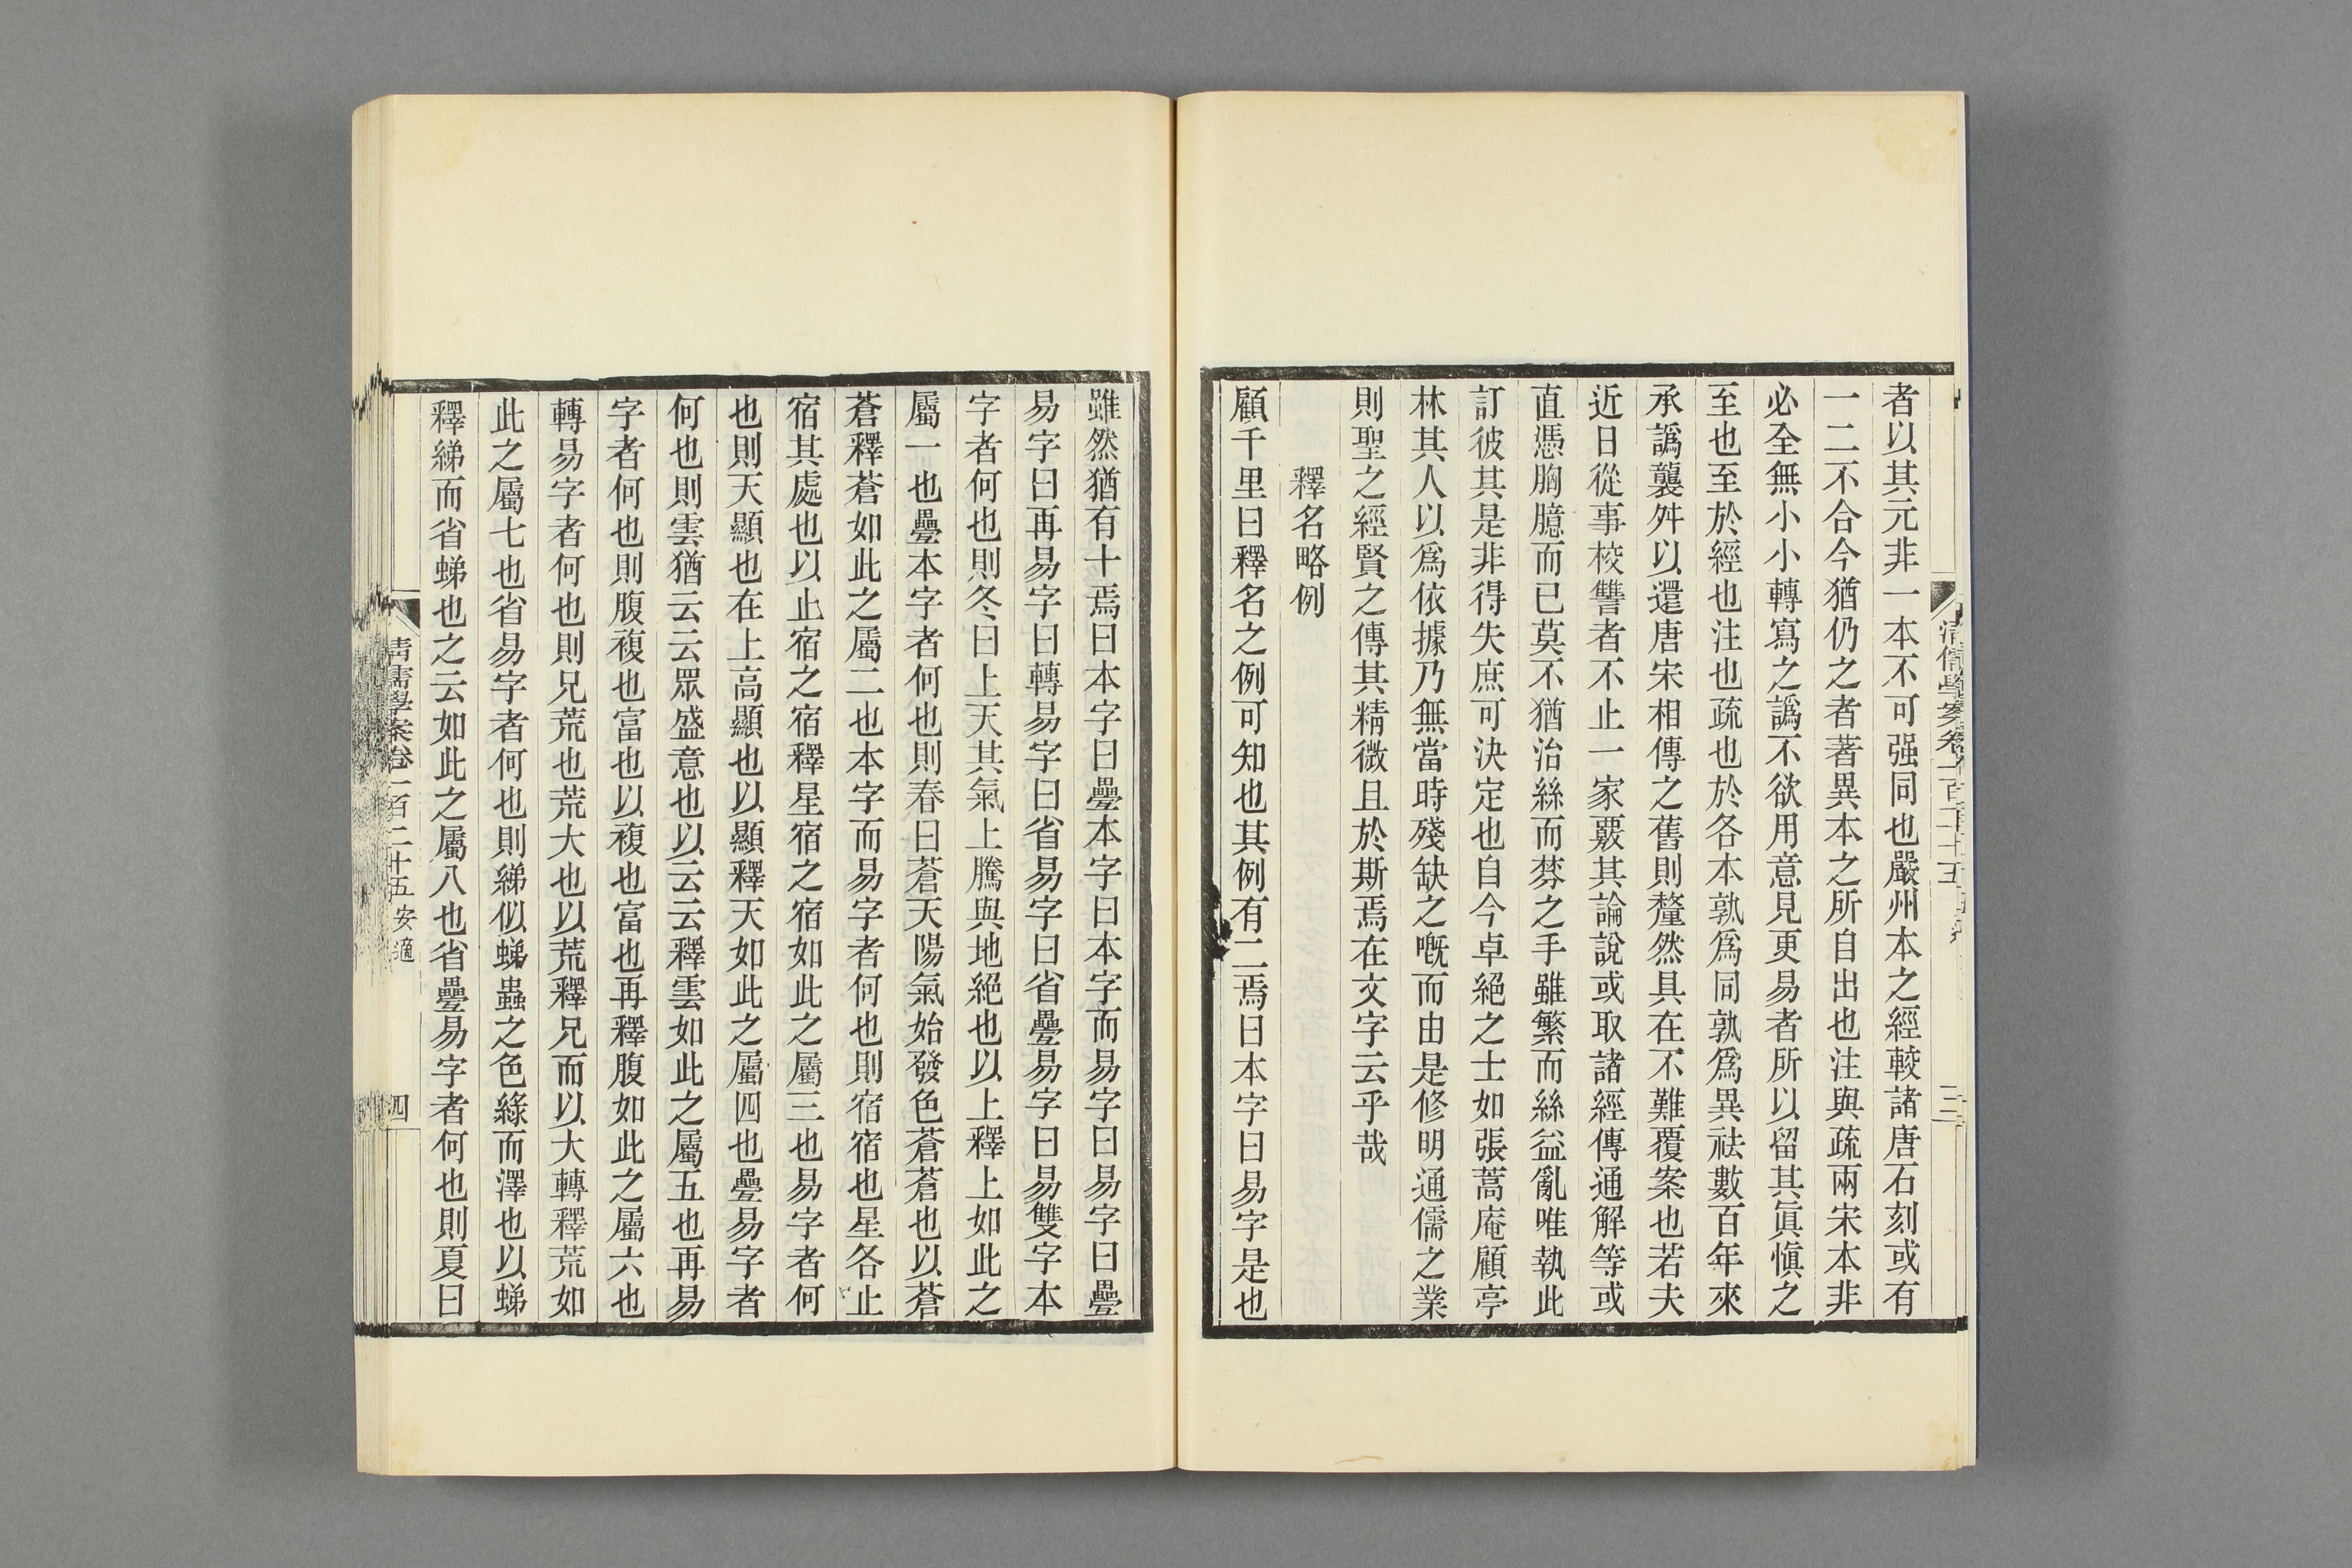 者以其元非一本不可强同也嚴州本之經較諸唐石刻或有
一二不合今猶仍之者著異本之所自出也注與疏兩宋本非
必全無小小轉寫之譌不欲用意見更易者所以留其眞愼之
至也至於經也注也疏也於各本孰爲同孰爲異祛數百年來
承譌襲舛以還唐宋相傳之舊則釐然具在不難覆案也若夫
近日從事校讐者不止一家覈其論說或取諸經傳通解等或
直憑胸臆而已莫不猶治絲而棼之手雖繁而絲益亂唯執此
訂彼其是非得失庶可決定也自今卓絕之士如張蒿庵顧亭
林其人以爲依據乃無當時殘缺之嘅而由是修明通儒之業
則聖之經賢之傳其精微且於斯焉在文字云乎哉
釋名略例
顧千里曰釋名之例可知也其例有二焉曰本字曰易字是也
雖然猶有十焉曰本字曰疊本字曰本字而易字曰易字曰疊
易字曰再易字曰轉易字曰省易字曰省疊易字曰易雙字本
字者何也則冬曰上天其氣上騰與地絕也以上釋上如此之
屬一也疊本字者何也則春曰蒼天陽氣始發色蒼蒼也以蒼
蒼釋蒼如此之屬二也本字而易字者何也則宿宿也星各止
宿其處也以止宿之宿釋星宿之宿如此之屬三也易字者何
也則天顯也在上高顯也以顯釋天如此之屬四也疊易字者
何也則雲猶云云眾盛意也以云云釋雲如此之屬五也再易
字者何也則腹複也富也以複也富也再釋腹如此之屬六也
轉易字者何也則兄荒也荒大也以荒釋兄而以大轉釋荒如
此之屬七也省易字者何也則綈似蝭蟲之色綠而澤也以蝭
釋綈而省蝭也之云如此之屬八也省疊易字者何也則夏曰
清儒學案卷一百二十五 安適
四